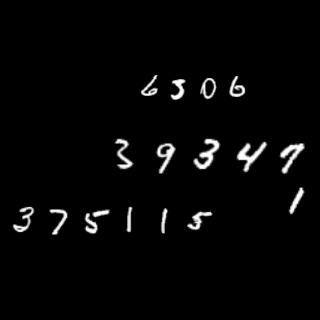 6506
39347
1
375115